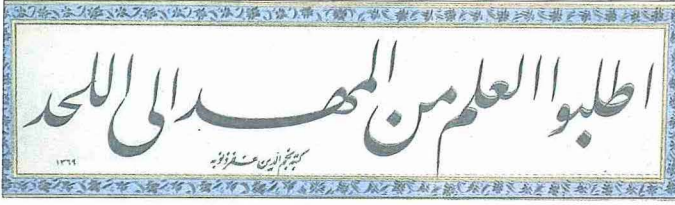 اطلبوا العلم من المهد الى اللحد
كتبه نجم الدين غفر ذنوبه
١٣٦٩